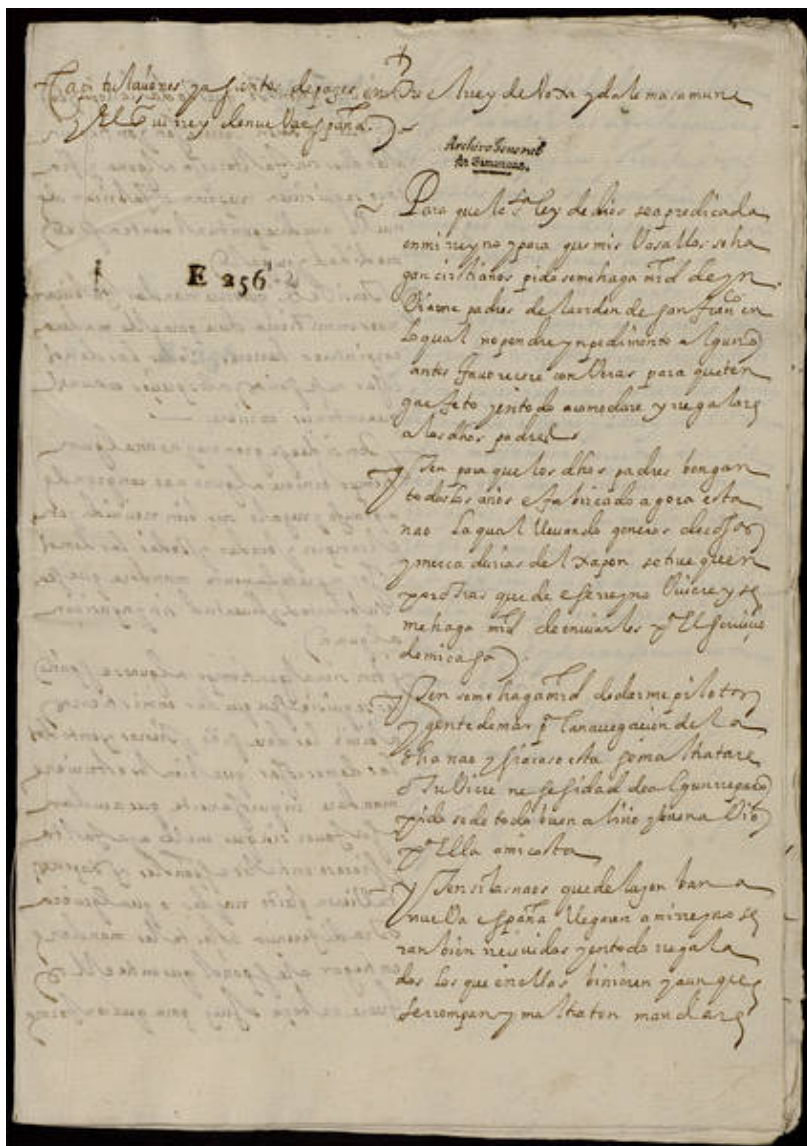 Capitulaçiones y asientos de pazes entre el rey de Voxu ydate masamune
y El Vi rrey de nueVa españa.
Archivo General
de Simancas.
E 256
Para que la sta ley de dios sea predicada
en mi reyno y para que mis Vasallos se ha
gan cristianos pido se me haga mrd de yn
biarme padres de la orden de san franco en
lo qual no pondre ynpedimento alguno
antes favorecere con Veras para que ten
ga efeto y en todo acomodare y regalare
a los dhos padres
yten para que los dhos padres bengan
todos los años e fabricado agora esta
nao La qual lleuando generos de cosas
y mercadurias del xapon se truequen
por otras que de ese reyno Viniere y se
me haga mrd de enviarles pa El seruiçio
de mi casa
yten se me haga mrd de darme pilotos
y gente de mar pa la nauegacion de la
dha nao y si acaso esta se maltratare
o tuViere nesesidad de algun reparo
pido se de todo buen aliño y buena
pa Ella a mi costa
yten si las naos que de lapon ban a
nueVa españa llegaren a mi reyno se
ran bien reciuidos y en todo regala
dos los que en ellas binieren y aunque
se rrompan y maltraten mandare